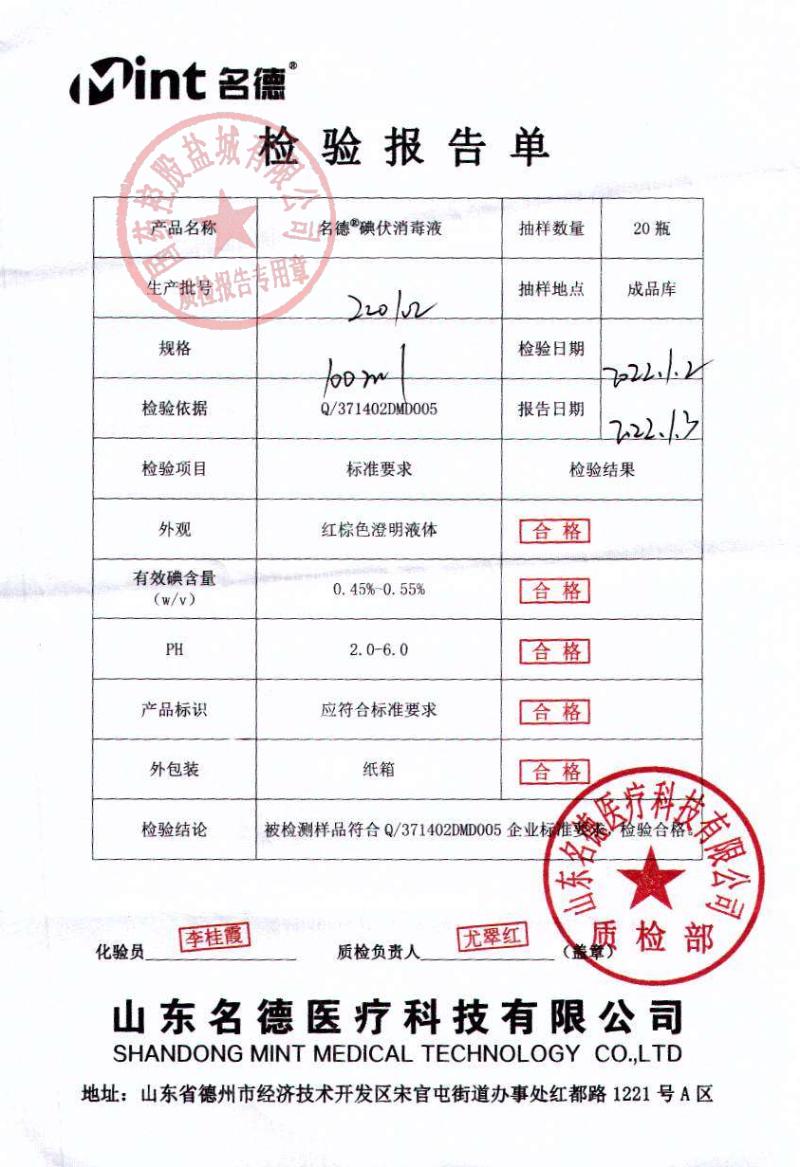 Mint 名德®
检验报告单
国药控股盐城有限公司
质检报告专用章
产品名称 名德®碘伏消毒液 抽样数量 20瓶
生产批号 220102 抽样地点 成品库
规格 100ml 检验日期 2022.1.2
检验依据 Q/371402DMD005 报告日期 2022.1.3
检验项目 标准要求 检验结果
外观 红棕色澄明液体 合格
有效碘含量
(w/v) 0.45%-0.55% 合格
PH 2.0-6.0 合格
产品标识 应符合标准要求 合格
外包装 纸箱 合格
检验结论 被检测样品符合 Q/371402DMD005 企业标准要求，检验合格。
山东名德医疗科技有限公司
质检部
化验员 李桂霞 质检负责人 尤翠红 (盖章)
山东名德医疗科技有限公司
SHANDONG MINT MEDICAL TECHNOLOGY CO.,LTD
地址：山东省德州市经济技术开发区宋官屯街道办事处红都路 1221 号 A 区